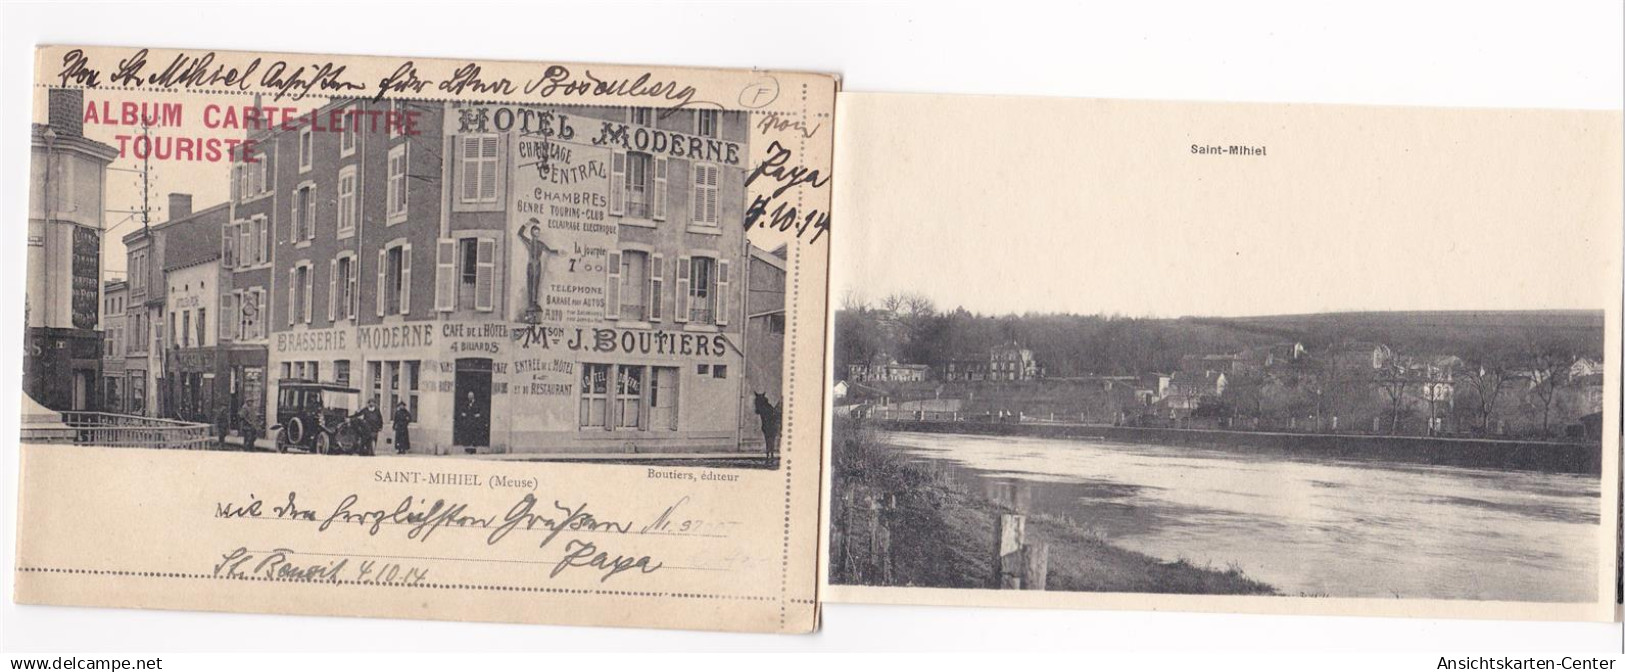 Von St. Mihiel Ansichten für Lina Bösenberg
F
ALBUM CARTE-LETTRE
TOURISTE
von
Papa
4.10.14
HOTEL MODERNE
CHAUFFAGE
CENTRAL
CHAMBRES
GENRE TOURING-CLUB
ECLAIRAGE ELECTRIQUE
LA journée
7f00
TELEPHONE
GARAGE POUR AUTOS
BRASSERIE MODERNE
CAFÉ DE L'HÔTEL
4 BILLARDS
MSON J. BOUTIERS
CAFÉ
ENTRÉE DE L'HÔTEL
ET DU RESTAURANT
SAINT-MIHIEL (Meuse)
Boutiers, éditeur
Mit den herzlichsten Grüßen
Papa
St. Benoit, 4.10.14
Saint-Mihiel
Ansichtskarten-Center